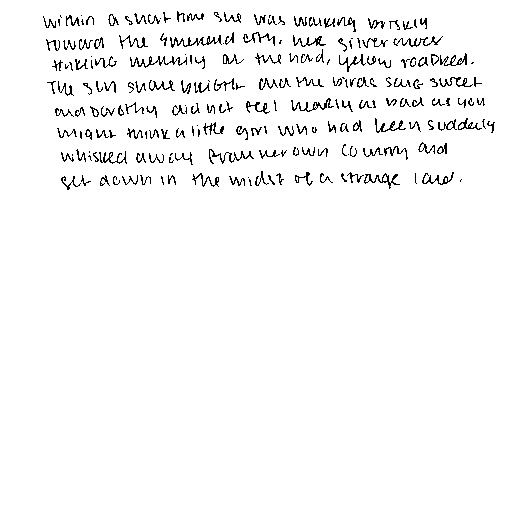 within a short time she was walking briskly
toward the Emerald City, her silver shoes
tinkling merrily on the hard, yellow roadbed.
The sun shone bright and the birds sang sweet
and Dorothy did not feel nearly as bad as you
might think a little girl who had been suddenly
whisked away from her own country and
set down in the midst of a strange land.